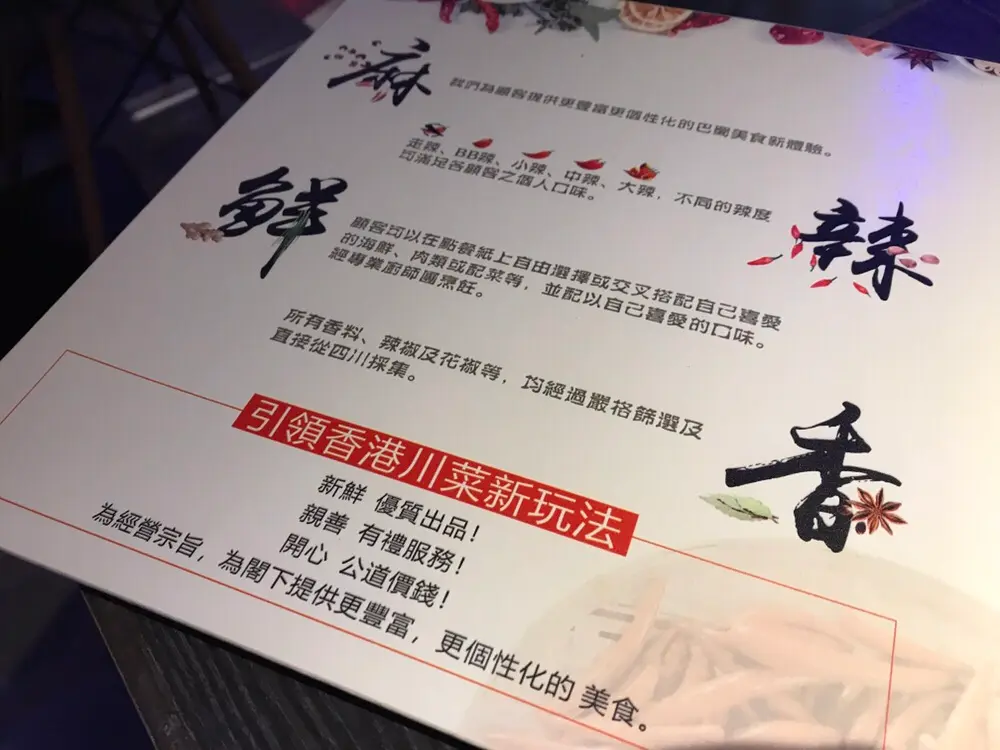 麻
我們為顧客提供更豐富更個性化的巴蜀美食新體驗。
走辣、BB辣、小辣、中辣、大辣，不同的辣度
可滿足各顧客之個人口味。
鮮
辣
顧客可以在點餐紙上自由選擇或交叉搭配自己喜愛
的海鮮、肉類或配菜等，並配以自己喜愛的口味。
經專業廚師團烹飪。
所有香料、辣椒及花椒等，均經過嚴格篩選及
直接從四川採集。
香
引領香港川菜新玩法
新鮮 優質出品！
親善 有禮服務！
開心 公道價錢！
為經營宗旨，為閣下提供更豐富，更個性化的 美食。